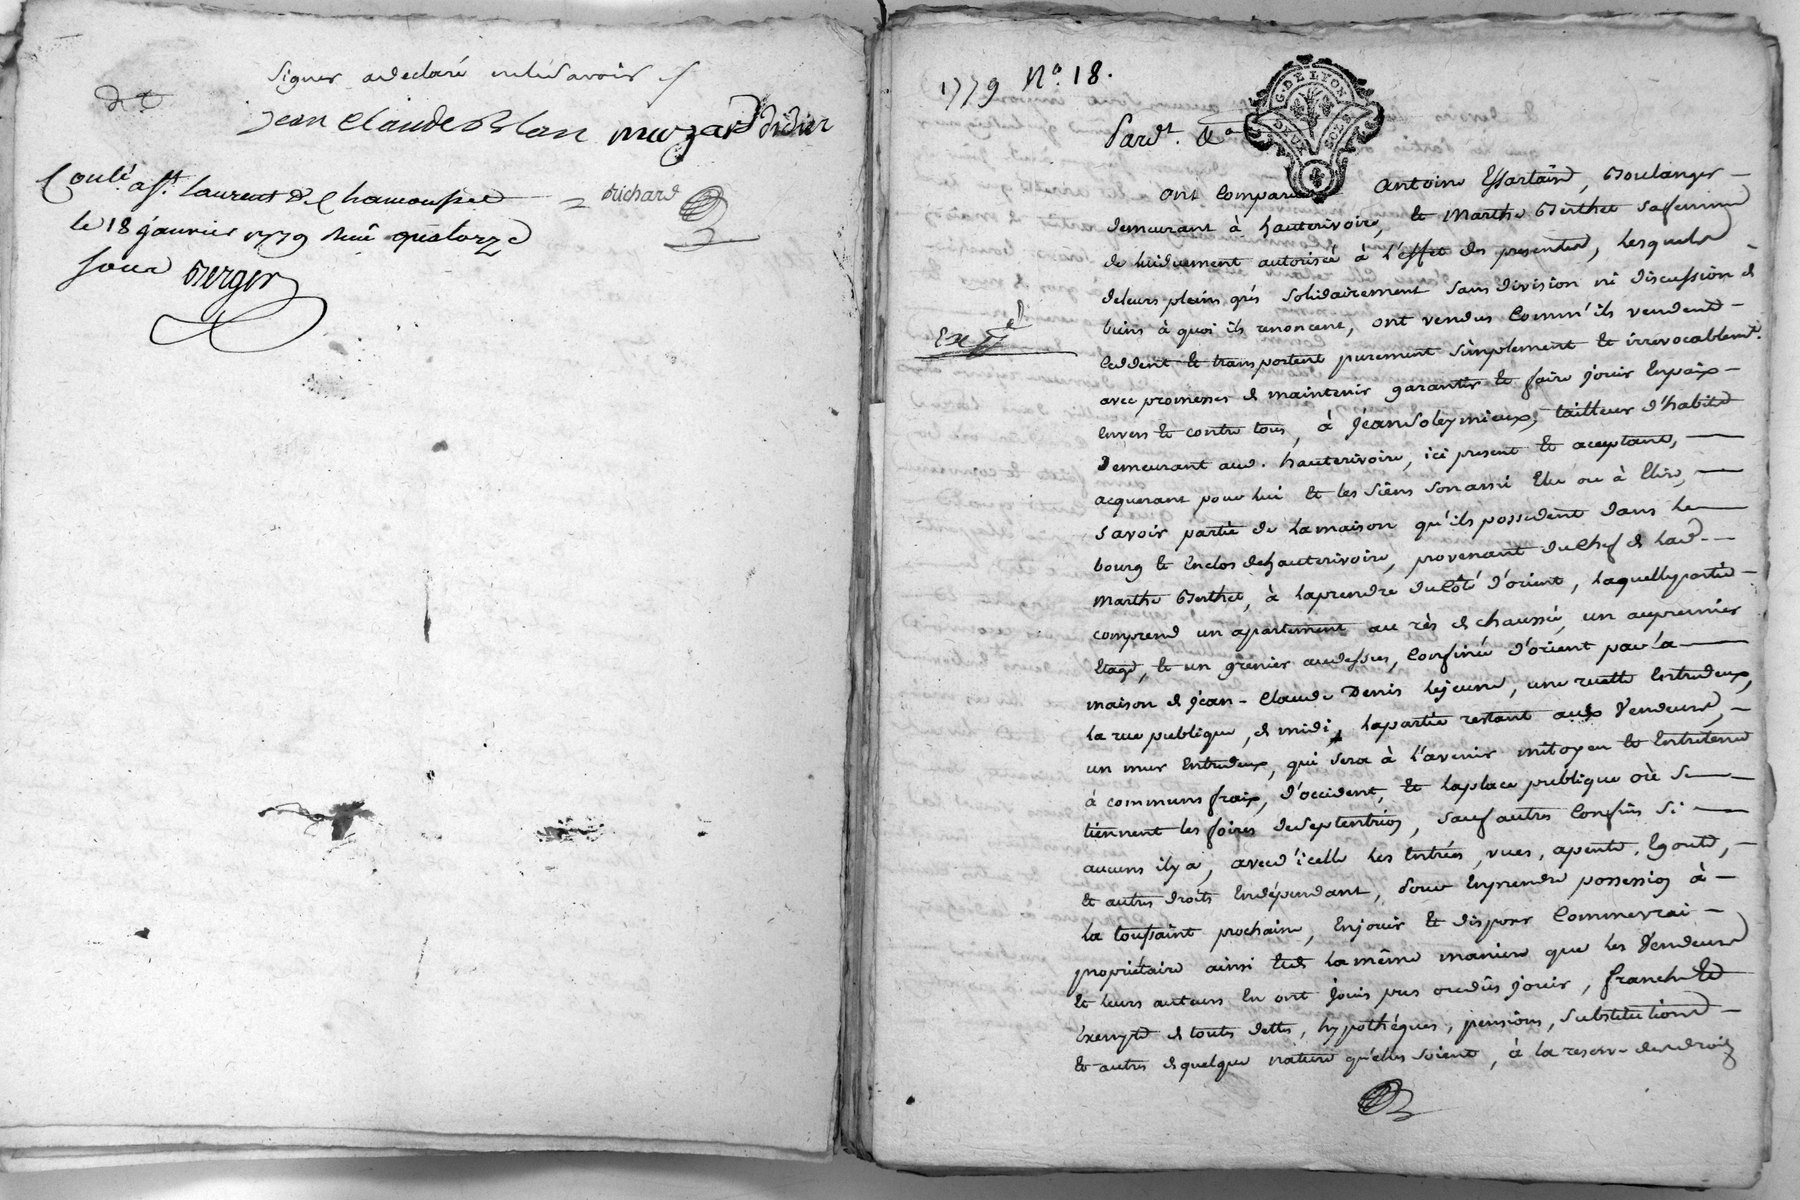 signer a declaré ne le savoir /
Jean Claude Blan mazard didier
Conlé. a St. laurent de Chamousset
Richard
le 18 janvier 1779 Reçû quatorze
sous Berger
1779 No. 18.
G. DE LYON
DEUX SOLS
Pardt. &a
ont comparu Antoine Essartaud, Boulanger
demeurant à hauterivoire, et Marthe Berthet sa femme
de lui duement autorisée à l'effet des presentes, lesquels
de leurs pleins grés solidairement sans division ni discussion de
biens à quoi ils renoncent, ont vendus comm'ils vendent
Exp
ceddent et transportent purement simplement et irrevocablemt.
avec promesses de maintenir garantir et faire jouir en paix
envers et contre tous, à Jean Soleymieux, tailleur d'habits
demeurant aud. hauterivoire, ici present et aceptant,
acquerant pour lui et les siens son ami Elu ou à Elire,
savoir partie de la maison qu'ils possedent dans le
bourg et Enclos de hauterivoire, provenant du Chef de lad.
Marthe Berthet, à la prendre du Côté d'orient, laquelle partie
comprend un apartement au rès de chaussée, un au premier
Etage, et un grenier au dessus, Confinée d'orient par la
maison de Jean-Claude Denis lejeune, une ruelle Entredeux,
la rue publique, de midi, la partie restant aux Vendeurs,
un mur Entredeux, qui sera à l'avenir mitoyen et Entretenu
à communs fraix, d'occident, et la place publique où se
tiennent les foires de Septentrion, sauf autres Confins si
aucuns il y a, avec d'icelle les Entrées, vues, apente, Egouts,
et autres droits En dépendant, pour En prendre possession à
la toussaint prochaine, En jouir et disposer Comme vrai
propriétaire ainsi et de la même maniere que les Vendeurs
et leurs auteurs En ont jouis pus ou dûs jouir, franche et
exempte de toutes dettes, hypothéques, pensions, substitutions
et autres de quelque nature qu'elles soient, à la reserve des droits